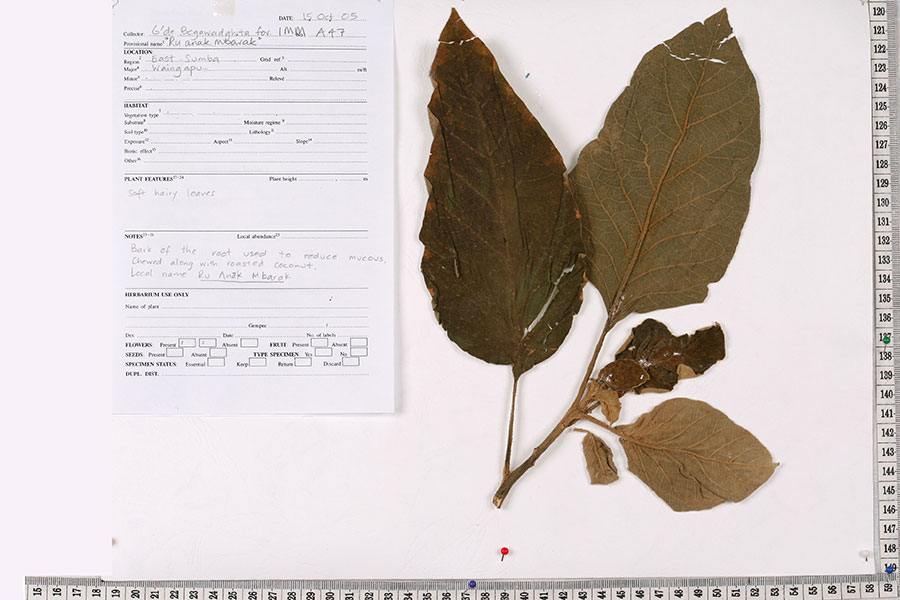 DATE: 15 Oct 05
Collector: G'de Begawadghita for IMM A47
Provisional name "Ru anak mbarak"
LOCATION
Region East Sumba Grid ref.
Major Waingapu Alt m/ft
Minor Relevé
Precise
HABITAT
Vegetation type
Substrate Moisture regime
Soil type Lithology
Exposure Aspect Slope
Biotic effect
Other
PLANT FEATURES Plant height m
Soft hairy leaves
NOTES Local abundance
Bark of the root used to reduce mucous.
Chewed along with roasted coconut.
Local name Ru Anak Mbarak
HERBARIUM USE ONLY
Name of plant
Genspec /
Det Date No. of labels
FLOWERS Present Absent FRUIT: Present Absent
SEEDS: Present Absent TYPE SPECIMEN: Yes No
SPECIMEN STATUS: Essential Keep Return Discard
DUPL. DIST.
120
121
122
123
124
125
126
127
128
129
130
131
132
133
134
135
136
137
138
139
140
141
142
143
144
145
146
147
148
149
15 16 17 18 19 20 21 22 23 24 25 26 27 28 29 30 31 32 33 34 35 36 37 38 39 40 41 42 43 44 45 46 47 48 49 50 51 52 53 54 55 56 57 58 59